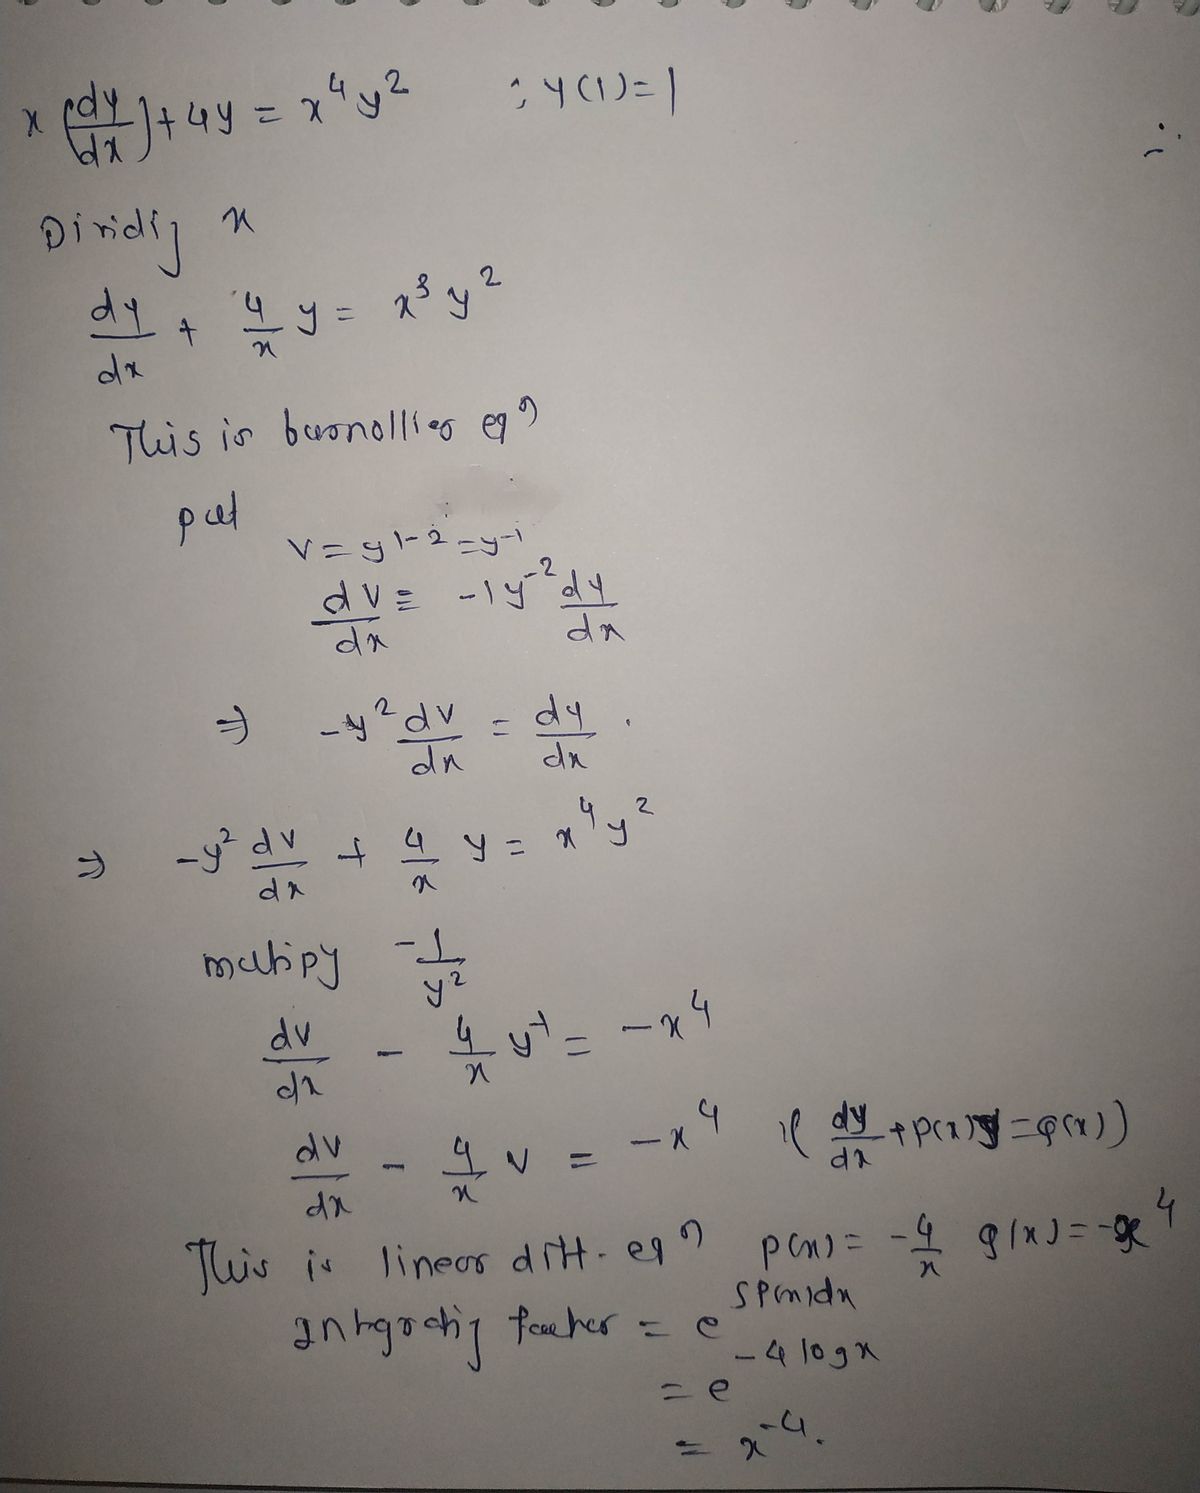 x (dy/dx) + 4y = x⁴y² ; y(1)=1
Dividig x
dy/dx + 4/x y = x³y²
This is bernollies eqⁿ
put
v = y¹⁻² = y⁻¹
dv/dx = -1y⁻² dy/dx
⇒ -y² dv/dx = dy/dx .
⇒ -y² dv/dx + 4/x y = x⁴y²
multipy -1/y²
dv/dx - 4/x y⁻¹ = -x⁴
dv/dx - 4/x v = -x⁴ ( dy/dx + P(x)y = Q(x))
This is linear diff. eqⁿ P(x) = -4/x Q(x) = -x⁴
Intgratig facter = e^∫P(x)dx
= e^-4 log x
= x⁻⁴.